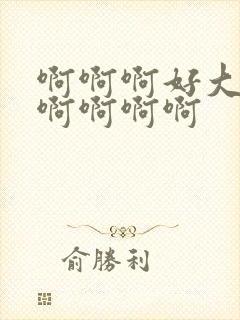 啊啊啊好大
啊啊啊啊
俞勝利